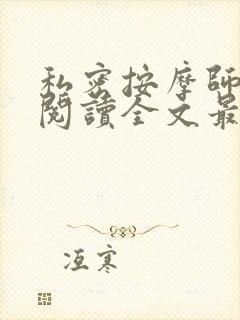 私密按摩師
閱讀全文最
冱寒